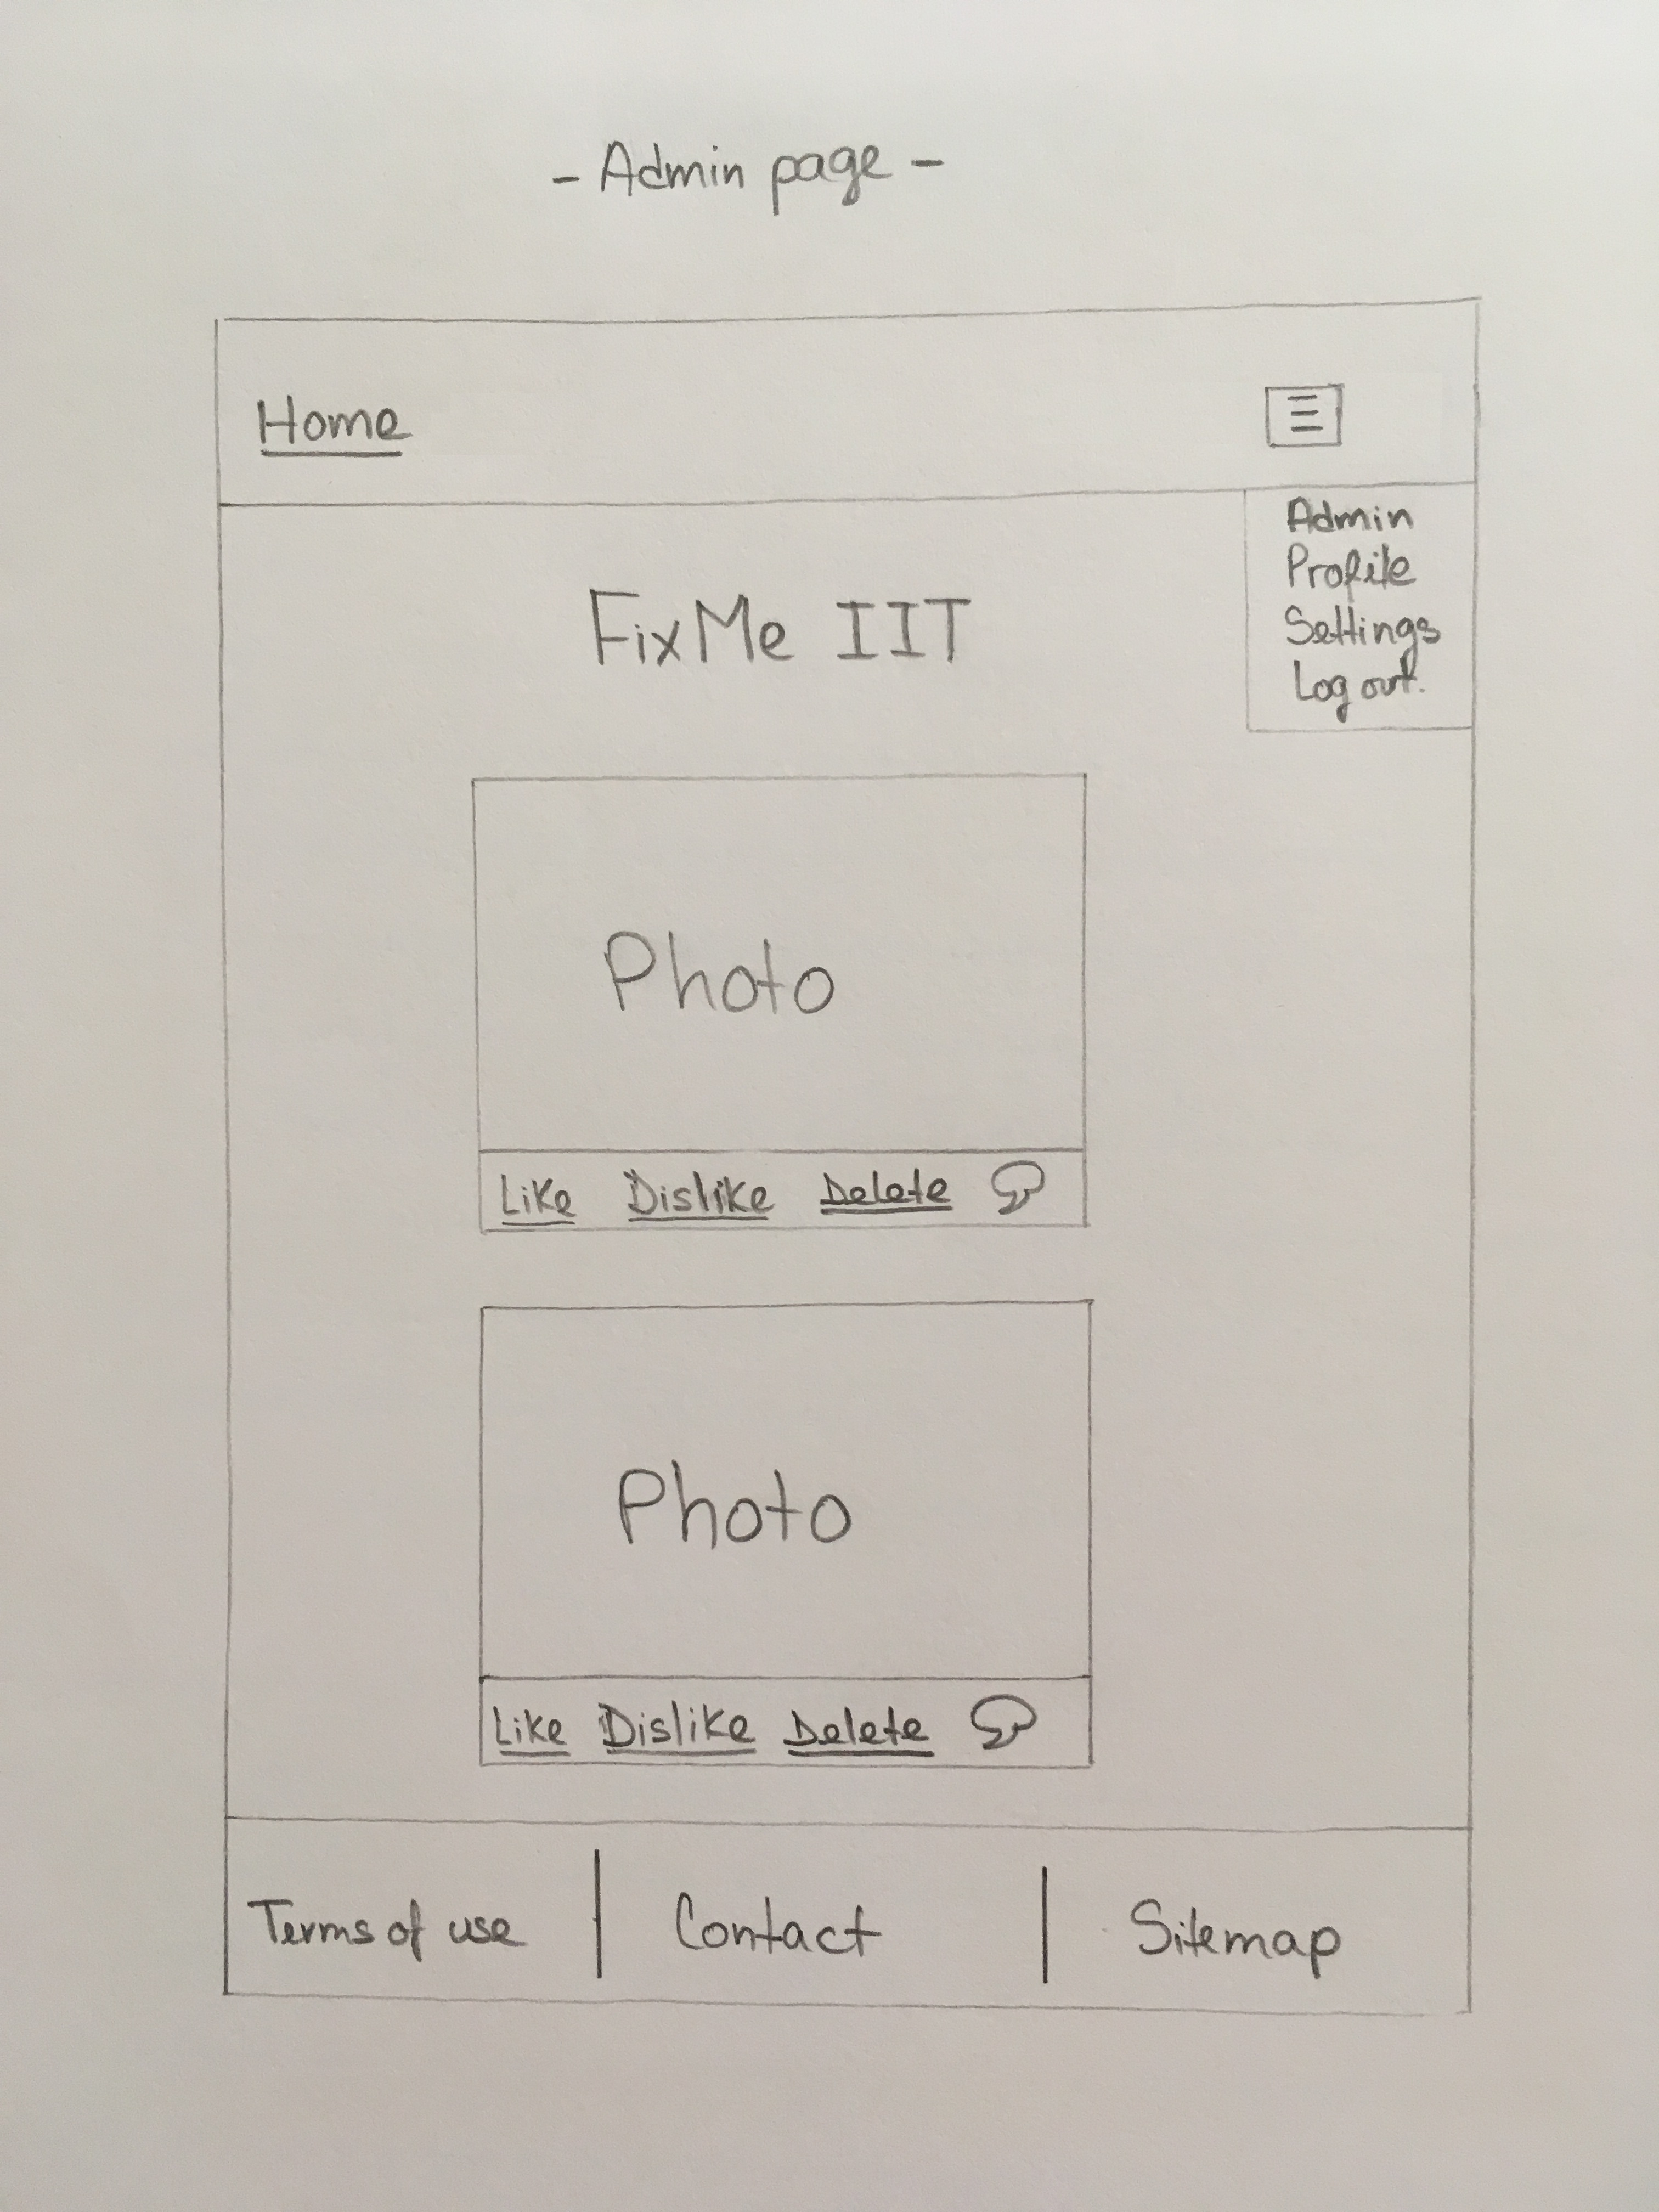 - Admin page -
Home
Admin
Profile
Settings
Log out.
FixMe IIT
Photo
Like Dislike Delete
Photo
Like Dislike Delete
Terms of use | Contact | Sitemap